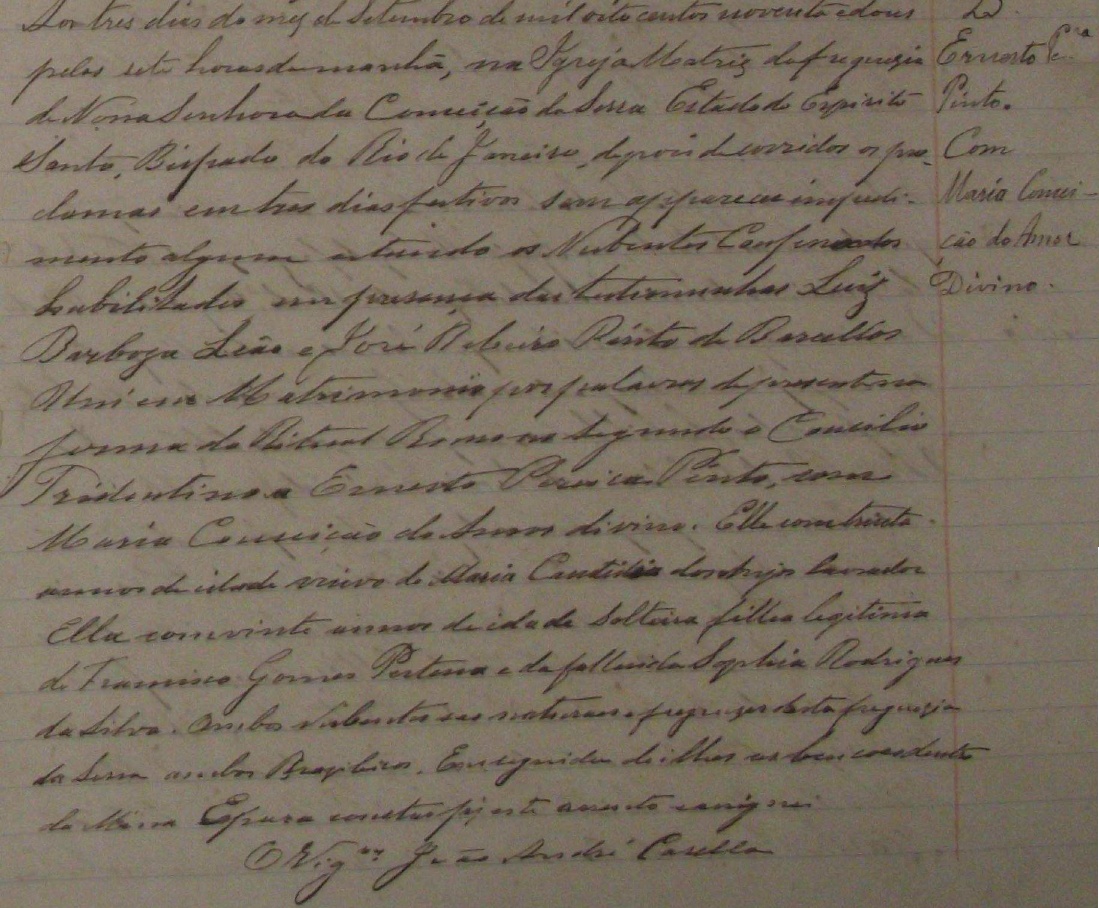 Aos tres dias do mez de Setembro de mil oito centos noventa e dous
pelas sete horas da manhã, na Igreja Matriz da freguezia
de Nossa Senhora da Conceição da Serra Estado do Espirito
Santo, Bispado do Rio de Janeiro, depois de corridos os pro-
clamas em tres dias festivos sem apparecer impedi-
mento algum estando os Nubentes Confessados
habilitados em presença das testemunhas Luiz
Barboza Leão e José Ribeiro Pinto de Barcellos
Uni em Matrimonio por palavras de presente na
forma do Ritual Romano segundo o Concilio
Tridentino a Ernesto Pereira Pinto, com
Maria Conceição do Amor divino. Elle com trinta
annos de idade viuvo de Maria Candida lavrador
Ella com vinte annos de idade Solteira filha legitima
de Francisco Gomes Pestena e da fallecida Sophia Rodrigues
da Silva. Ambos Nubentes sao naturaes e freguezes desta freguezia
da Serra ambos Brazileiros. Em seguida dei lhes as bençoes dentro
da Missa E para constar fiz este assento e assignei
O Vigro João André Casella
2
Ernesto Pa
Pinto.
Com
Maria Concei-
ção do Amor
Divino.